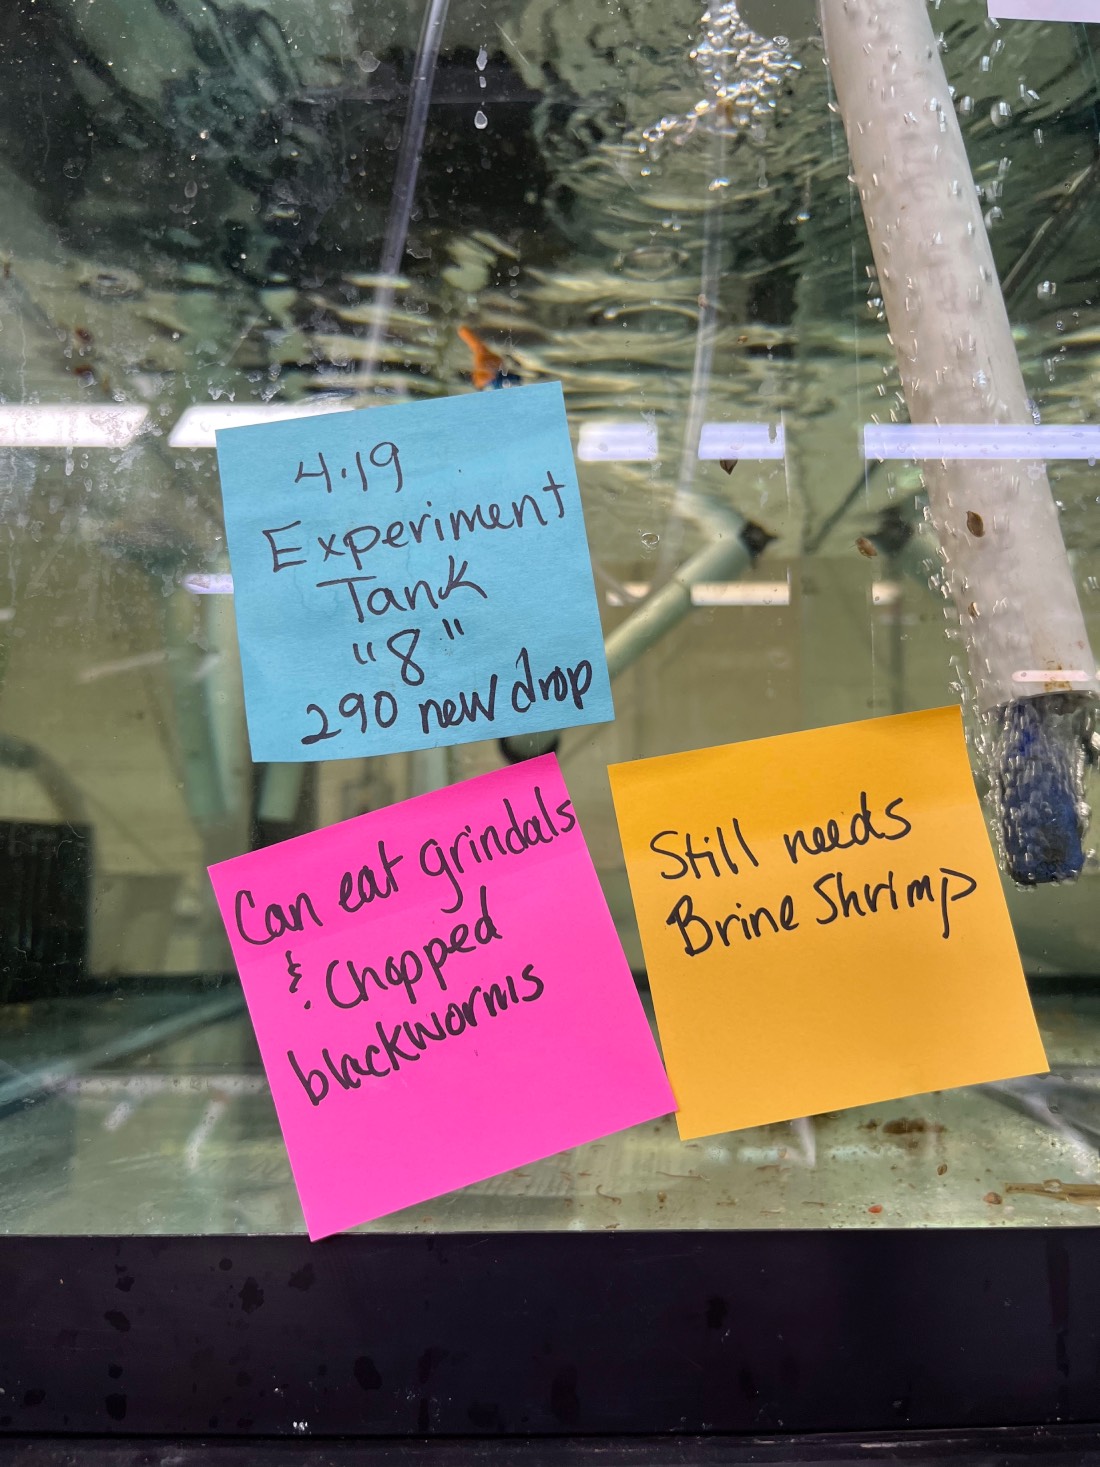 4.19
Experiment
Tank
"8"
290 new drop
Can eat grindals
& Chopped
blackworms
Still needs
Brine Shrimp